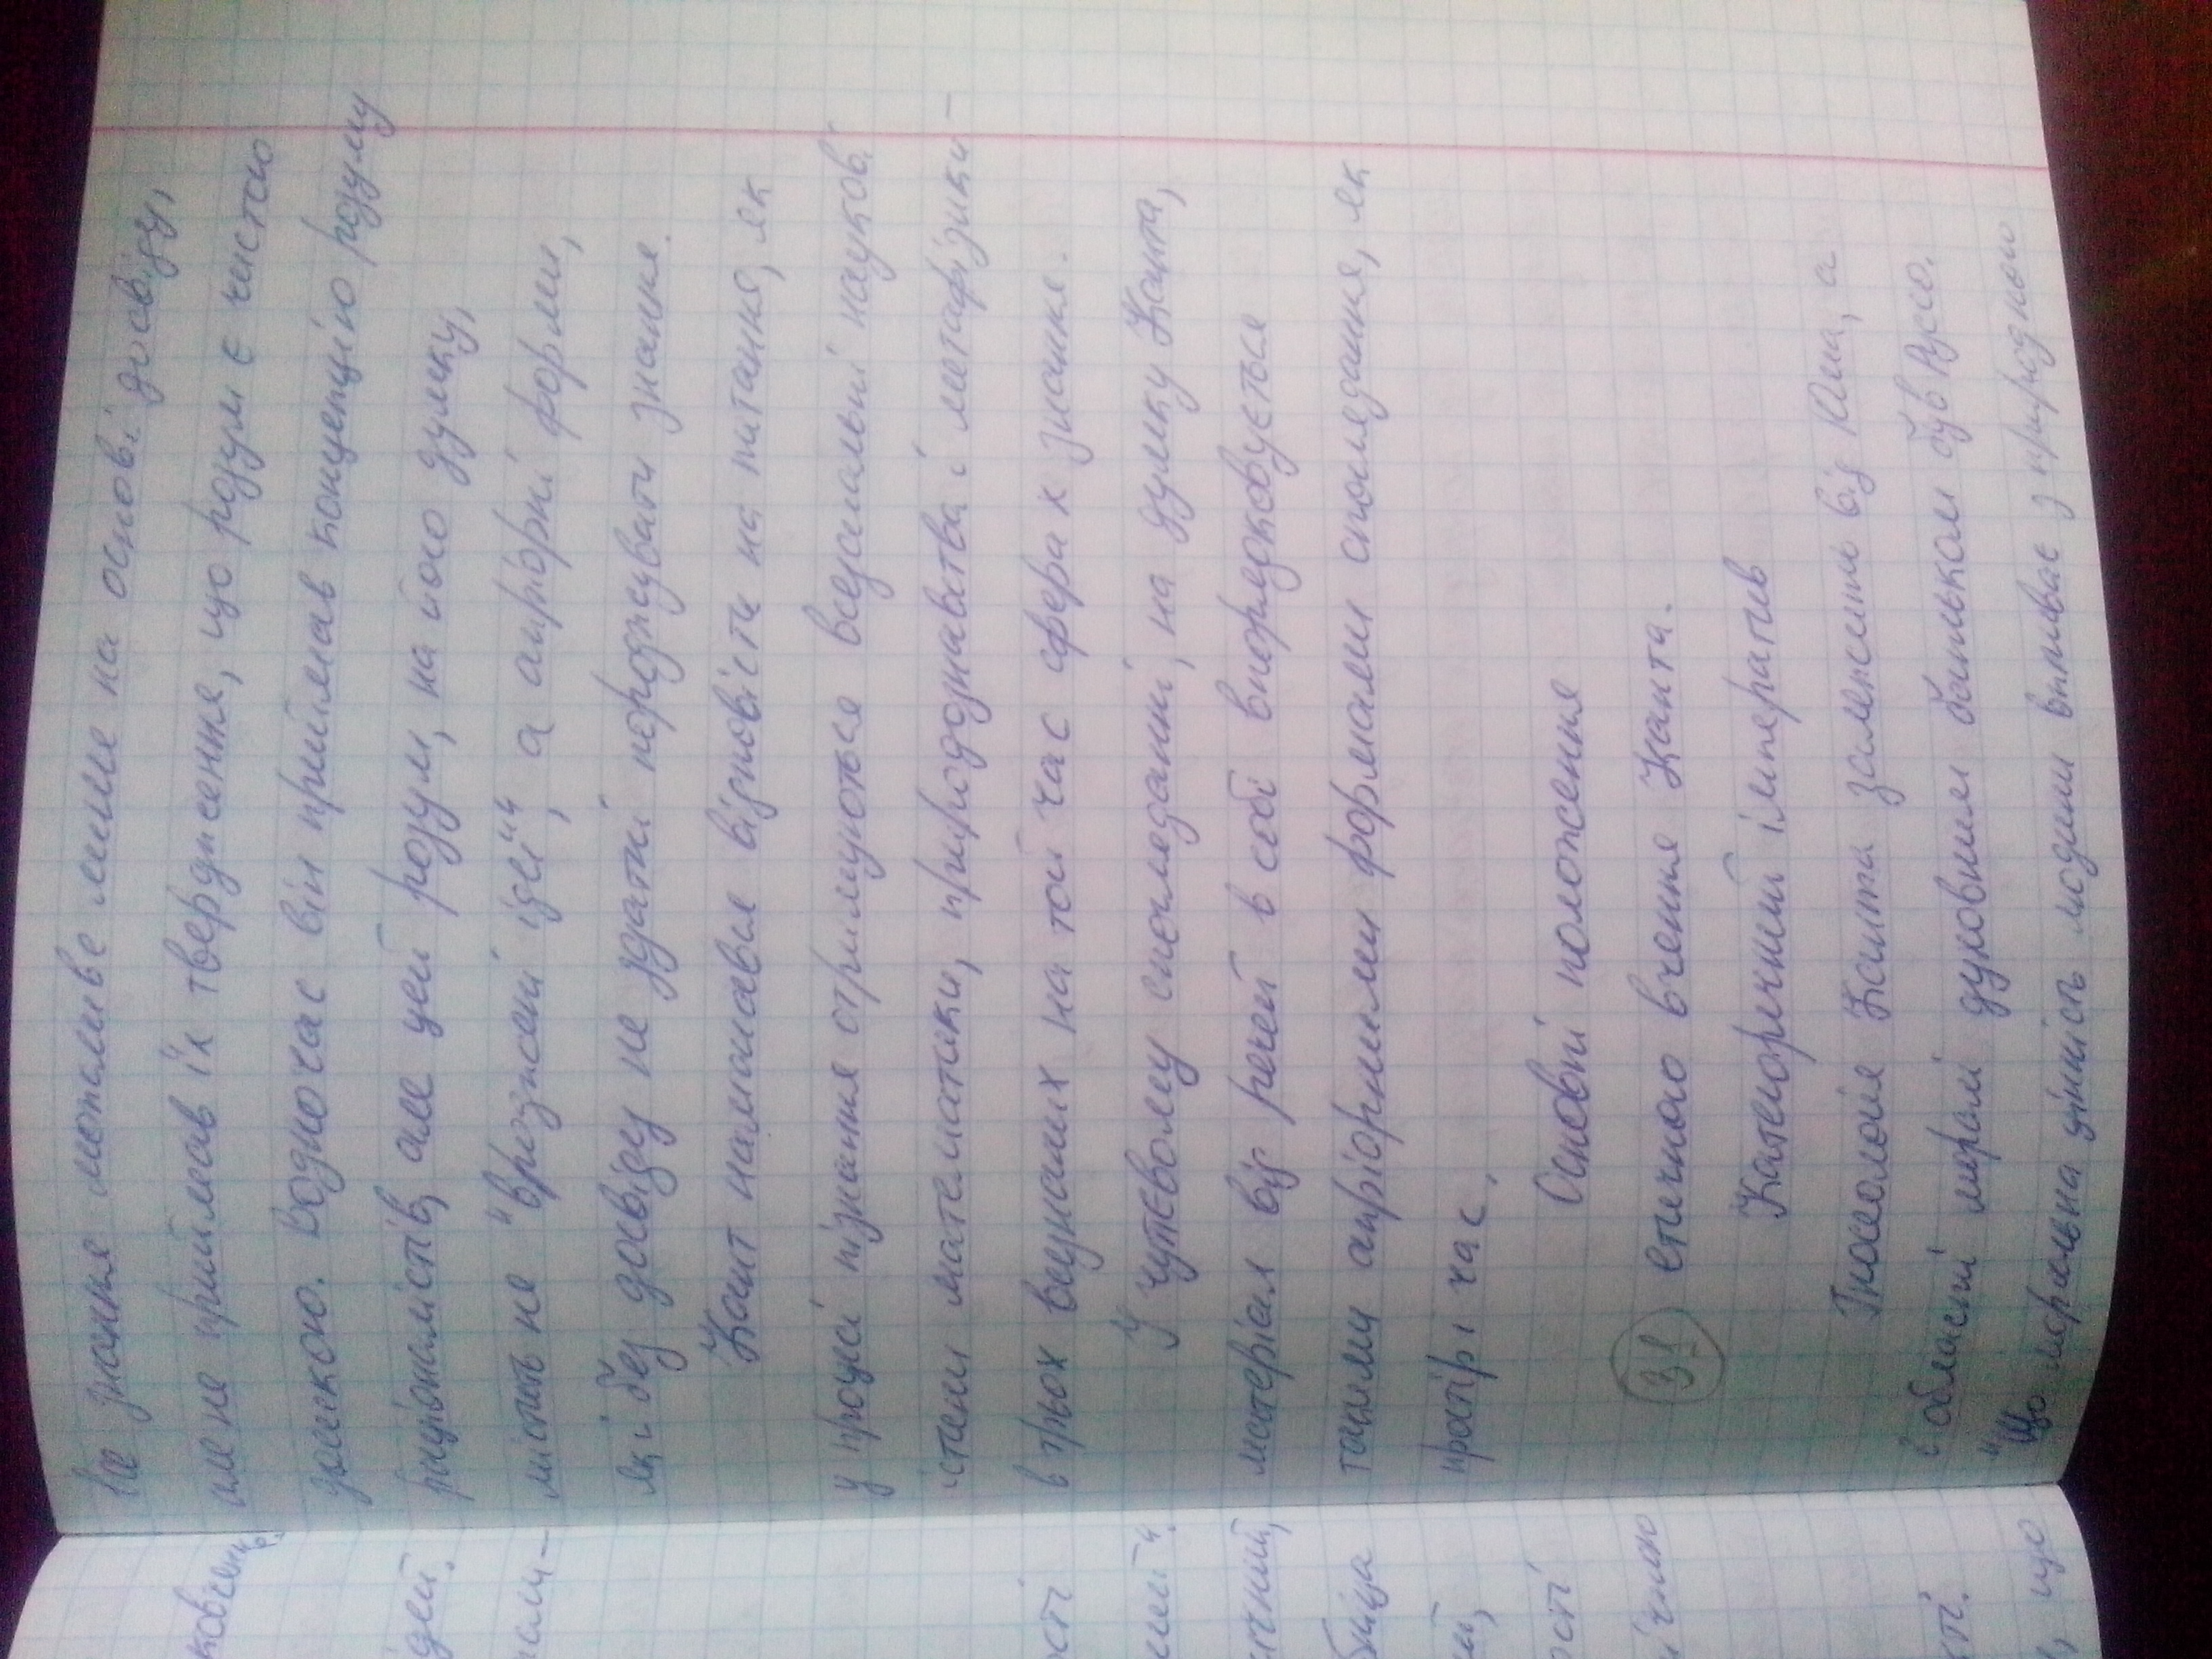 все знання можливе лише на основі досвіду,
але не приймав їх твердження, що розум є чистою
дошкою. Водночас він приймав концепцію розуму
раціоналістів, але цей розум, на його думку,
містить не "вроджені ідеї", а апріорні форми,
які без досвіду не здатні породжувати знання.
Кант намагався відповісти на питання, як
у процесі пізнання отримуються всезагальні наукові
істини математики, природознавства і метафізики –
в трьох визнаних на той час сферах знання.
У чуттєвому спогляданні, на думку Канта,
матеріал від речей в собі впорядковується
такими апріорними формами споглядання, як
простір і час.
Основні положення
31 етичного вчення Канта.
Категоричний імператив
Гносеологія Канта залежить від Юма, а
в області моралі духовним батьком був Руссо.
"Що моральна цінність людини випливає з природного